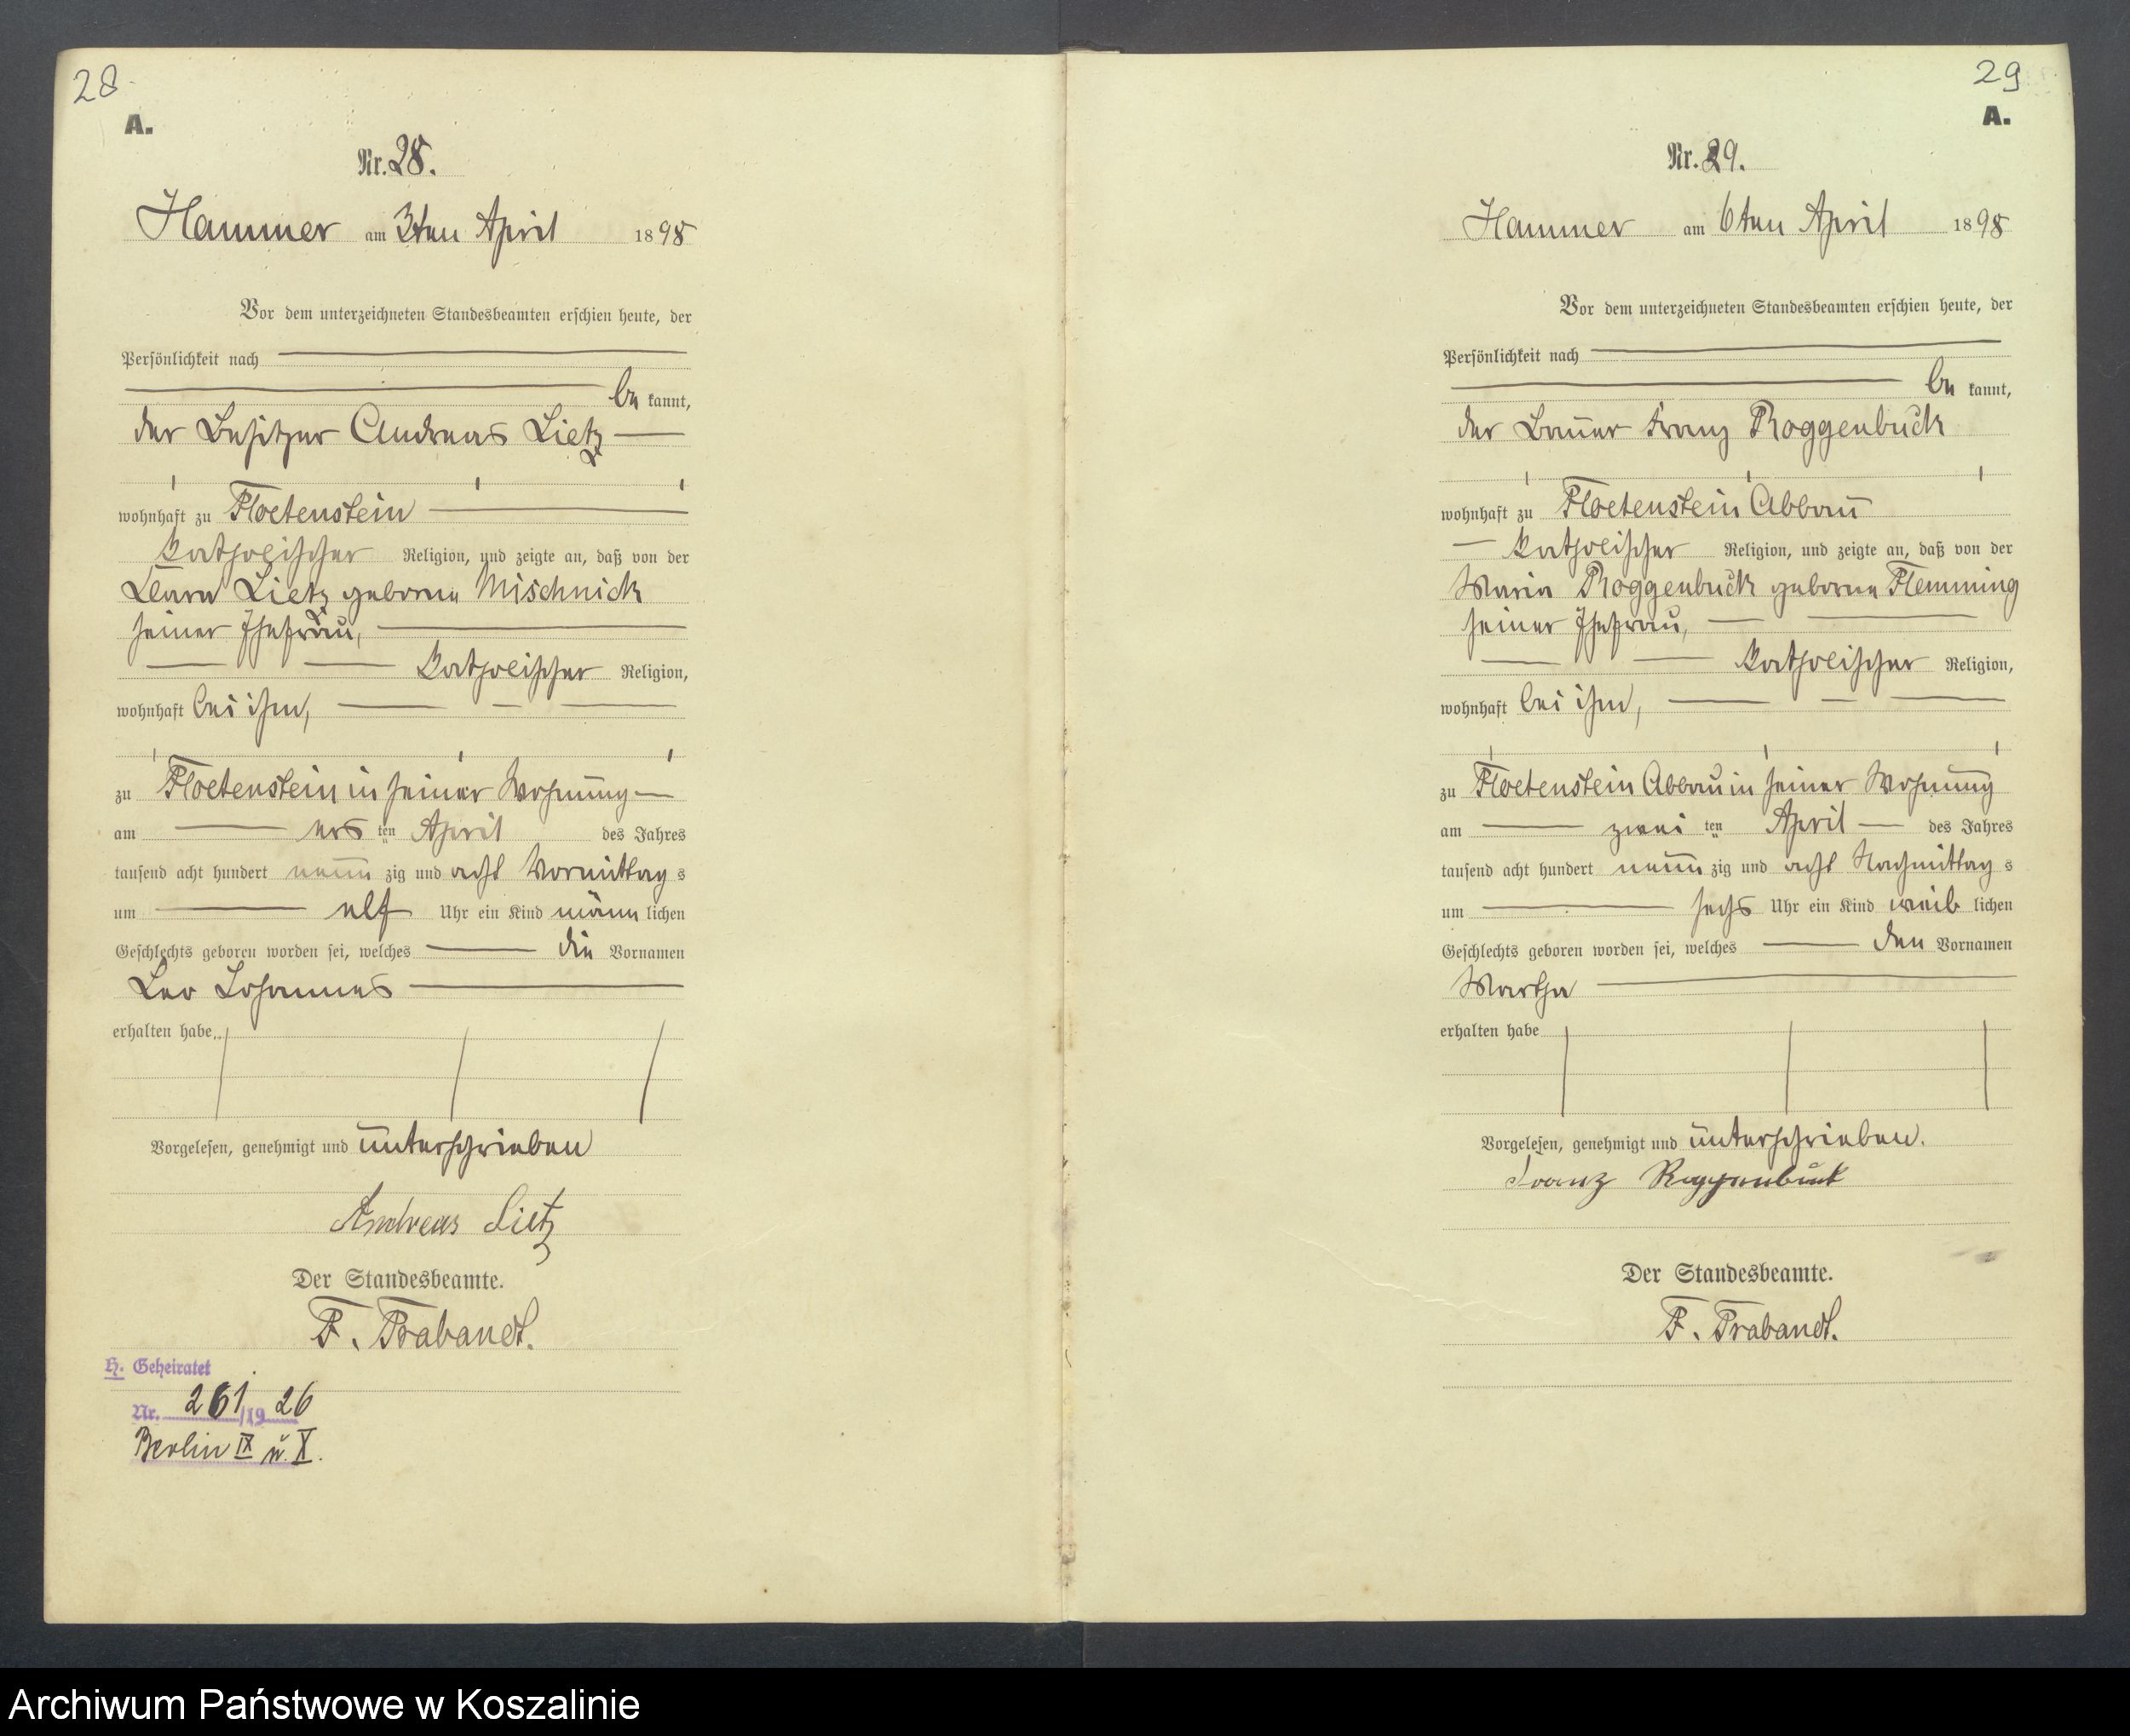 28
A.
Nr. 28.
Hammer am 3ten April 1898
Vor dem unterzeichneten Standesbeamten erschien heute, der
Persönlichkeit nach
be kannt,
der Besitzer Andreas Lietz
wohnhaft zu Floetenstein
katholischer Religion, und zeigte an, daß von der
Clara Lietz geborene Mischnick
seiner Ehefrau,
katholischer Religion,
wohnhaft bei ihm,
zu Floetenstein in seiner Wohnung
am ers ten April des Jahres
tausend acht hundert neun zig und acht Vormittag s
um elf Uhr ein Kind männ lichen
Geschlechts geboren worden sei, welches die Vornamen
Leo Johannes
erhalten habe.
Vorgelesen, genehmigt und unterschrieben
Andreas Lietz
Der Standesbeamte.
F. Trabandt.
H. Geheiratet
Nr. 261/19 26
Berlin IX u. X.
29
A.
Nr. 29.
Hammer am 6ten April 1898
Vor dem unterzeichneten Standesbeamten erschien heute, der
Persönlichkeit nach
be kannt,
der Bauer Franz Roggenbuck
wohnhaft zu Floetenstein Abbau
katholischer Religion, und zeigte an, daß von der
Maria Roggenbuck geborene Flemming
seiner Ehefrau,
katholischer Religion,
wohnhaft bei ihm,
zu Floetenstein Abbau in seiner Wohnung
am zwei ten April des Jahres
tausend acht hundert neun zig und acht Nachmittag s
um sechs Uhr ein Kind weib lichen
Geschlechts geboren worden sei, welches den Vornamen
Martha
erhalten habe
Vorgelesen, genehmigt und unterschrieben.
Franz Roggenbuck
Der Standesbeamte.
F. Trabandt.
Archiwum Państwowe w Koszalinie